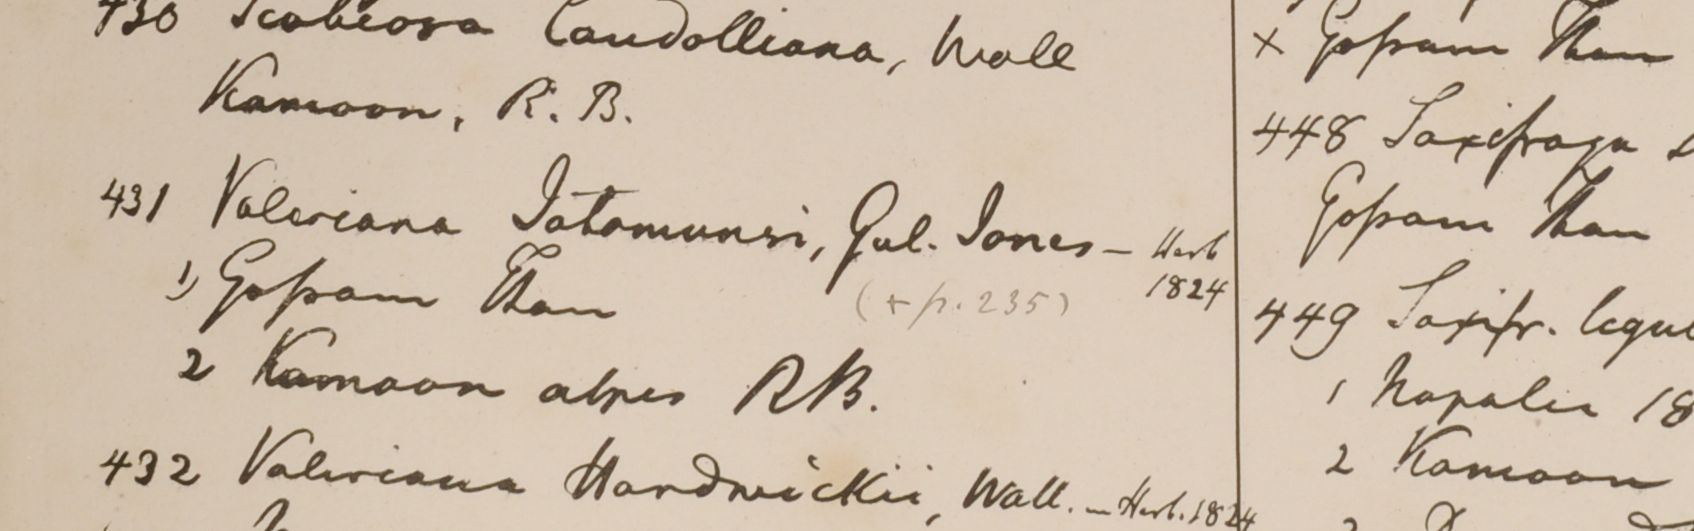 430 Scabiosa Candolliana, Wall
Kamoon, R. B.
431 Valeriana Jatamunsi, Gul. Jones – Herb
1824
1) Gossam Than
(+ p. 235)
2 Kamoon alpes RB.
432 Valeriana Hardwickii, Wall. – Herb. 1824
× Gossam Than
448 Saxifraga
Gossam Than
449 Saxifr. ligul
1 Napalia 18
2 Kamoon